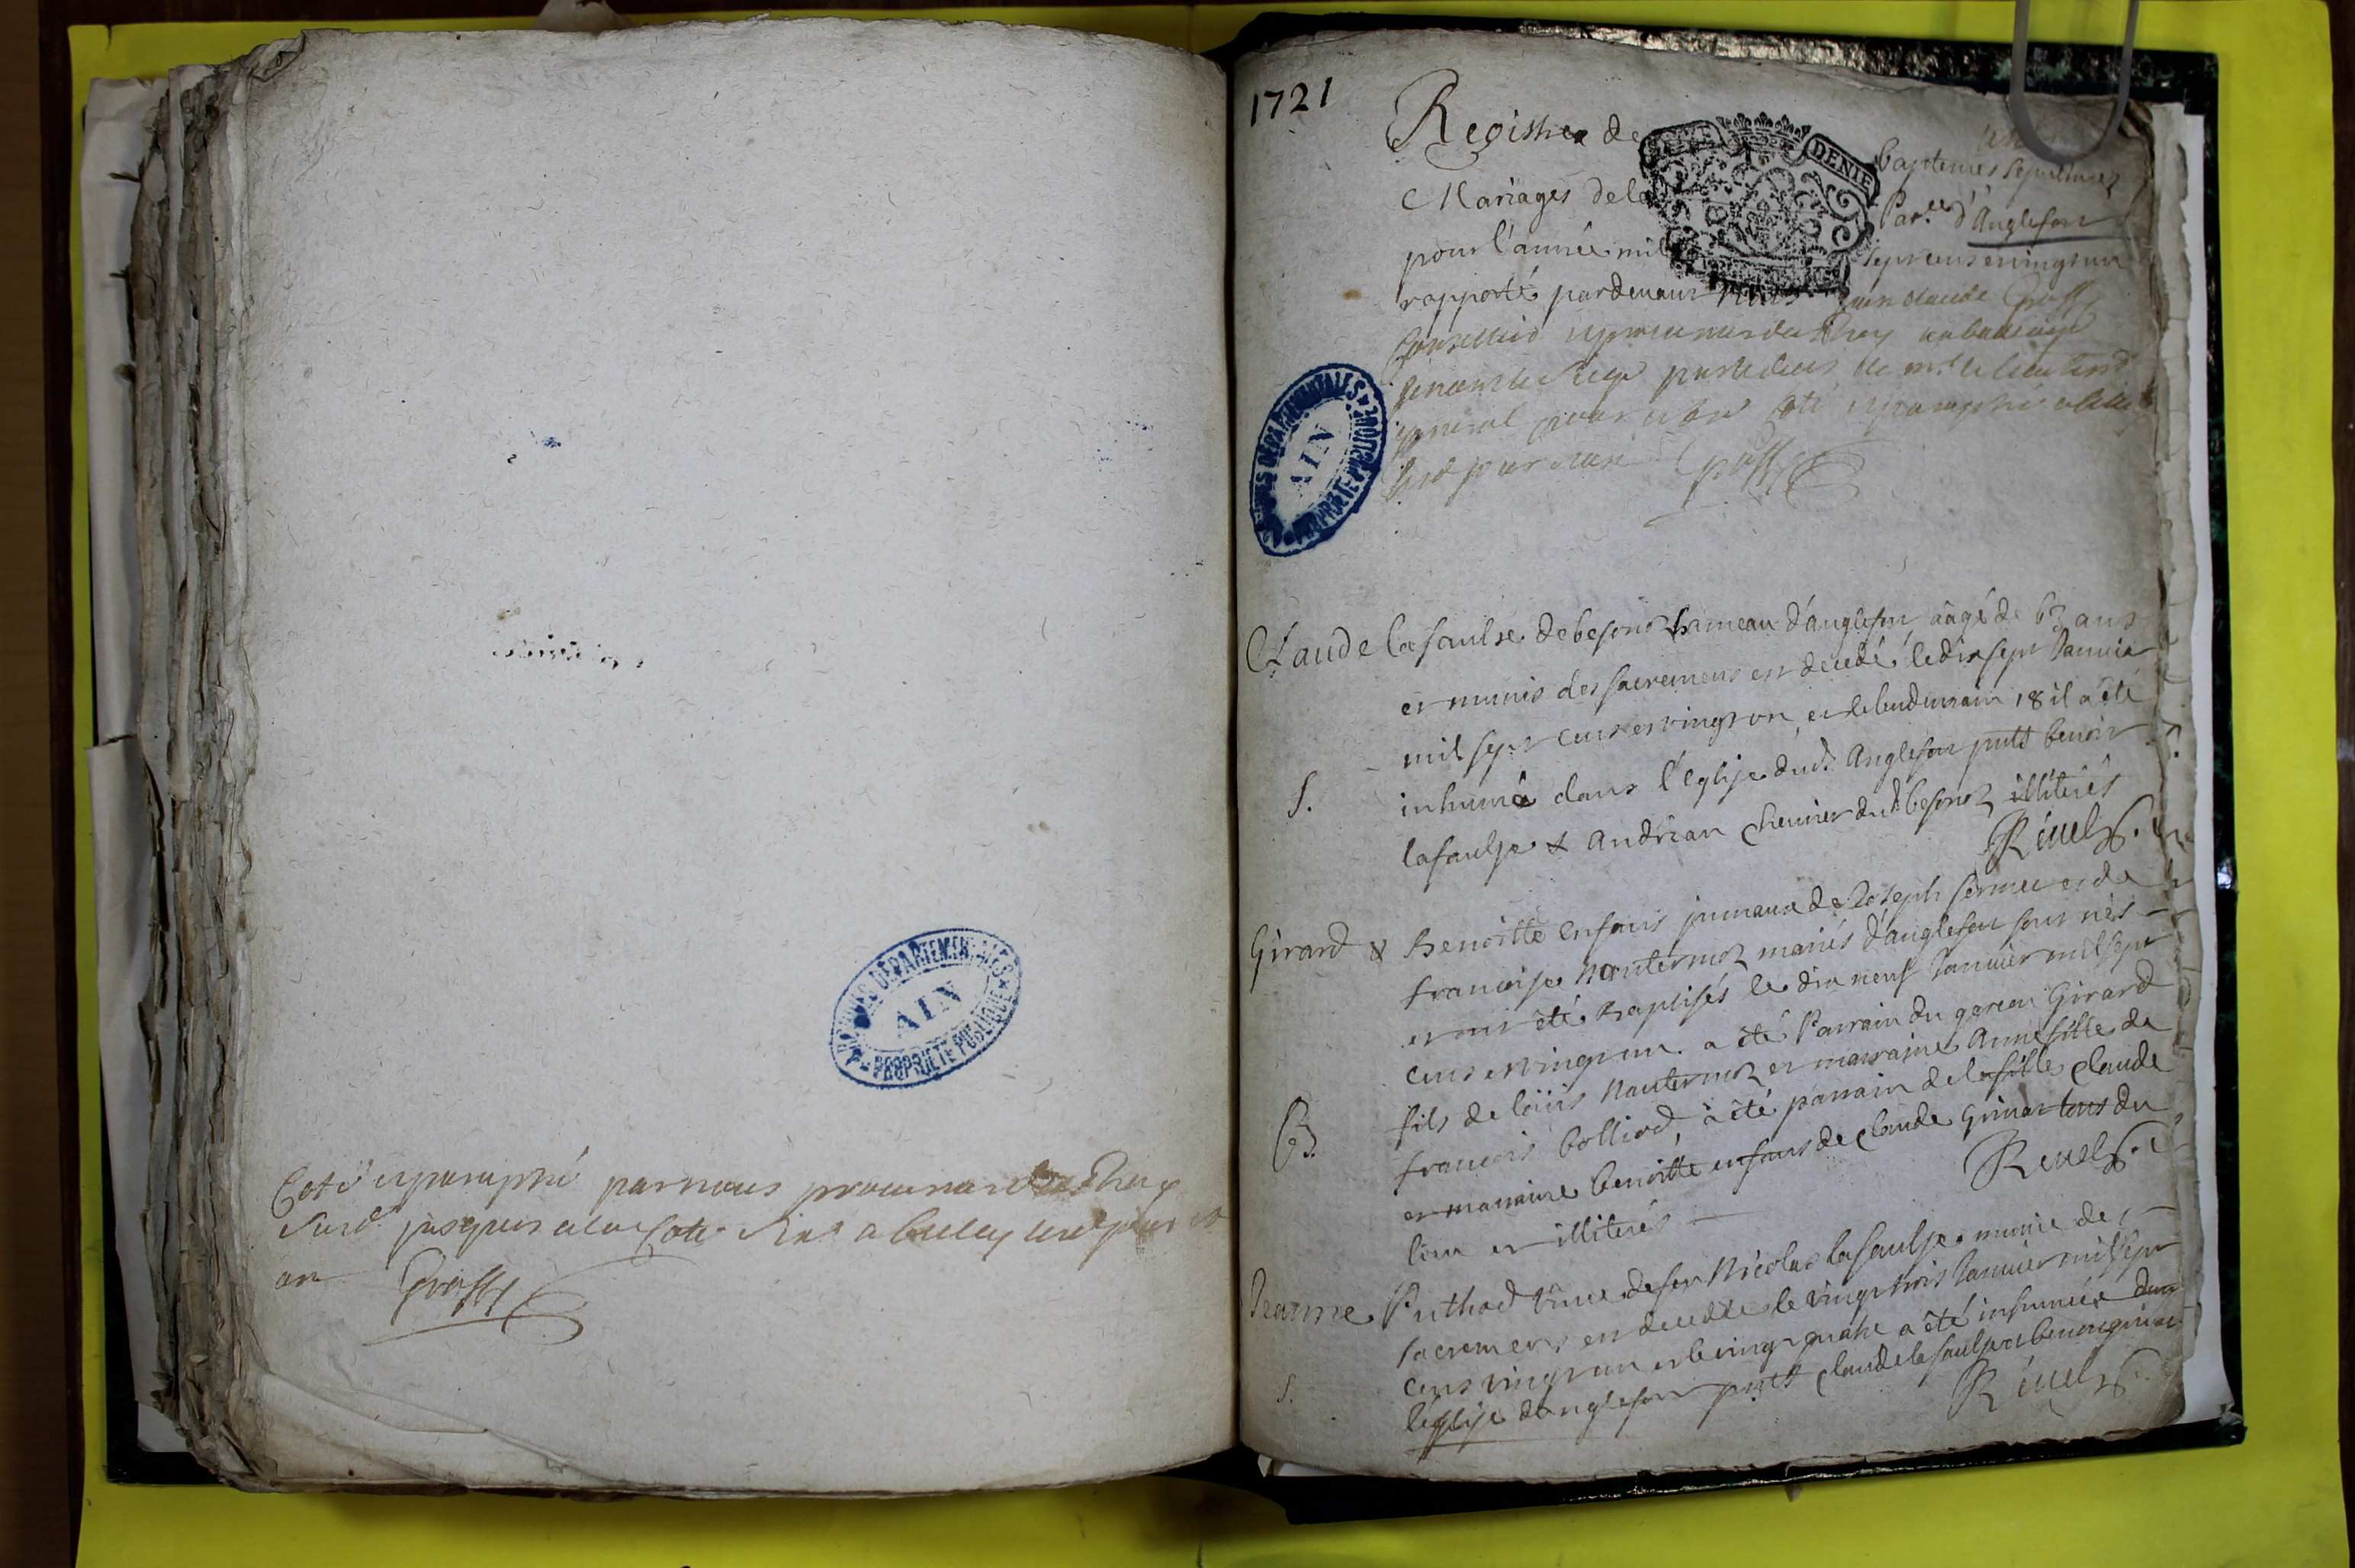 Coté et paraphé par nous procureur du Roy
Susd. jusques a la Cote a belley led. jour et
an Grosse
ARCHIVES DEPARTEMENTALES
AIN
PROPRIETE PUBLIQUE
1721
Registre de baptemes Sepultures
Mariages de la Par.sse d'Anglefort
pour l'année mil sept cens et vingt un
rapporté pardevant claude Grosse
Conseiller et procureur du Roy au balliage
general pour etre Coté et paraphé
led. jour et an Grosse
DENIE
ARCHIVES DEPARTEMENTALES
AIN
PROPRIETE PUBLIQUE
Claude lafaulse de besonoz hameau d'anglefort aagé de 63 ans
et munis des sacremens est decedé le dix sept Janvier
mil sept cens et vingt un, et le lendemain 18 il a été
S. inhumé dans l'Eglise dud. Anglefort pntt benoit
lafaulse & Andrean chenier dud besonoz illiterés
Revel
Girard & Benoitte enfans jumeaux de Joseph et de
francoise Nantermoz mariés d'anglefort sont nés
et ont été baptisés le dix neuf Janvier mil sept
cens et vingt un. a été Parrain du garcon Girard
fils de loüis Nantermoz et marraine Anne fille de
B. francois bolliod, a été parrain de la fille Claude
et marraine benoitte enfans de claude tous du
lieu et illiterés
Revel
Jeanne Puthod veuve de feu Nicolas lafaulse munie des
sacremens est decedée le vingt trois Janvier mil sept
cens vingt un et le vingt quatre a été inhumée dans
S. l'église d'Anglefort pntt claude lafaulse et
Revel